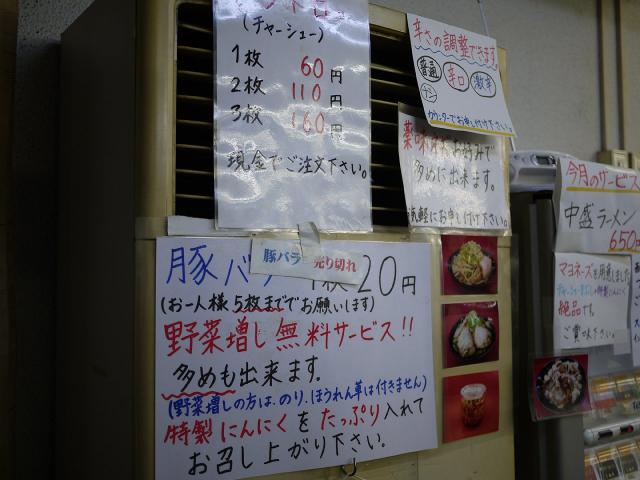 (チャーシュー)
1枚 60円
2枚 110円
3枚 160円
現金でご注文下さい。
辛さの調整できます。
普通 辛口 激辛
カウンターでお申し付け下さい。
お好みで
多めに出来ます。
気軽にお申し付け下さい
今月のサービス
中盛ラーメン
650円
マヨネーズを用意しました
絶品です。
ご賞味下さい。
豚バラ 売り切れ
豚バラ 1枚 20円
(お一人様 5枚まででお願いします)
野菜増し無料サービス!!
多めも出来ます。
(野菜増しの方は、のり、ほうれん草は付きません)
特製にんにくをたっぷり入れて
お召し上がり下さい。